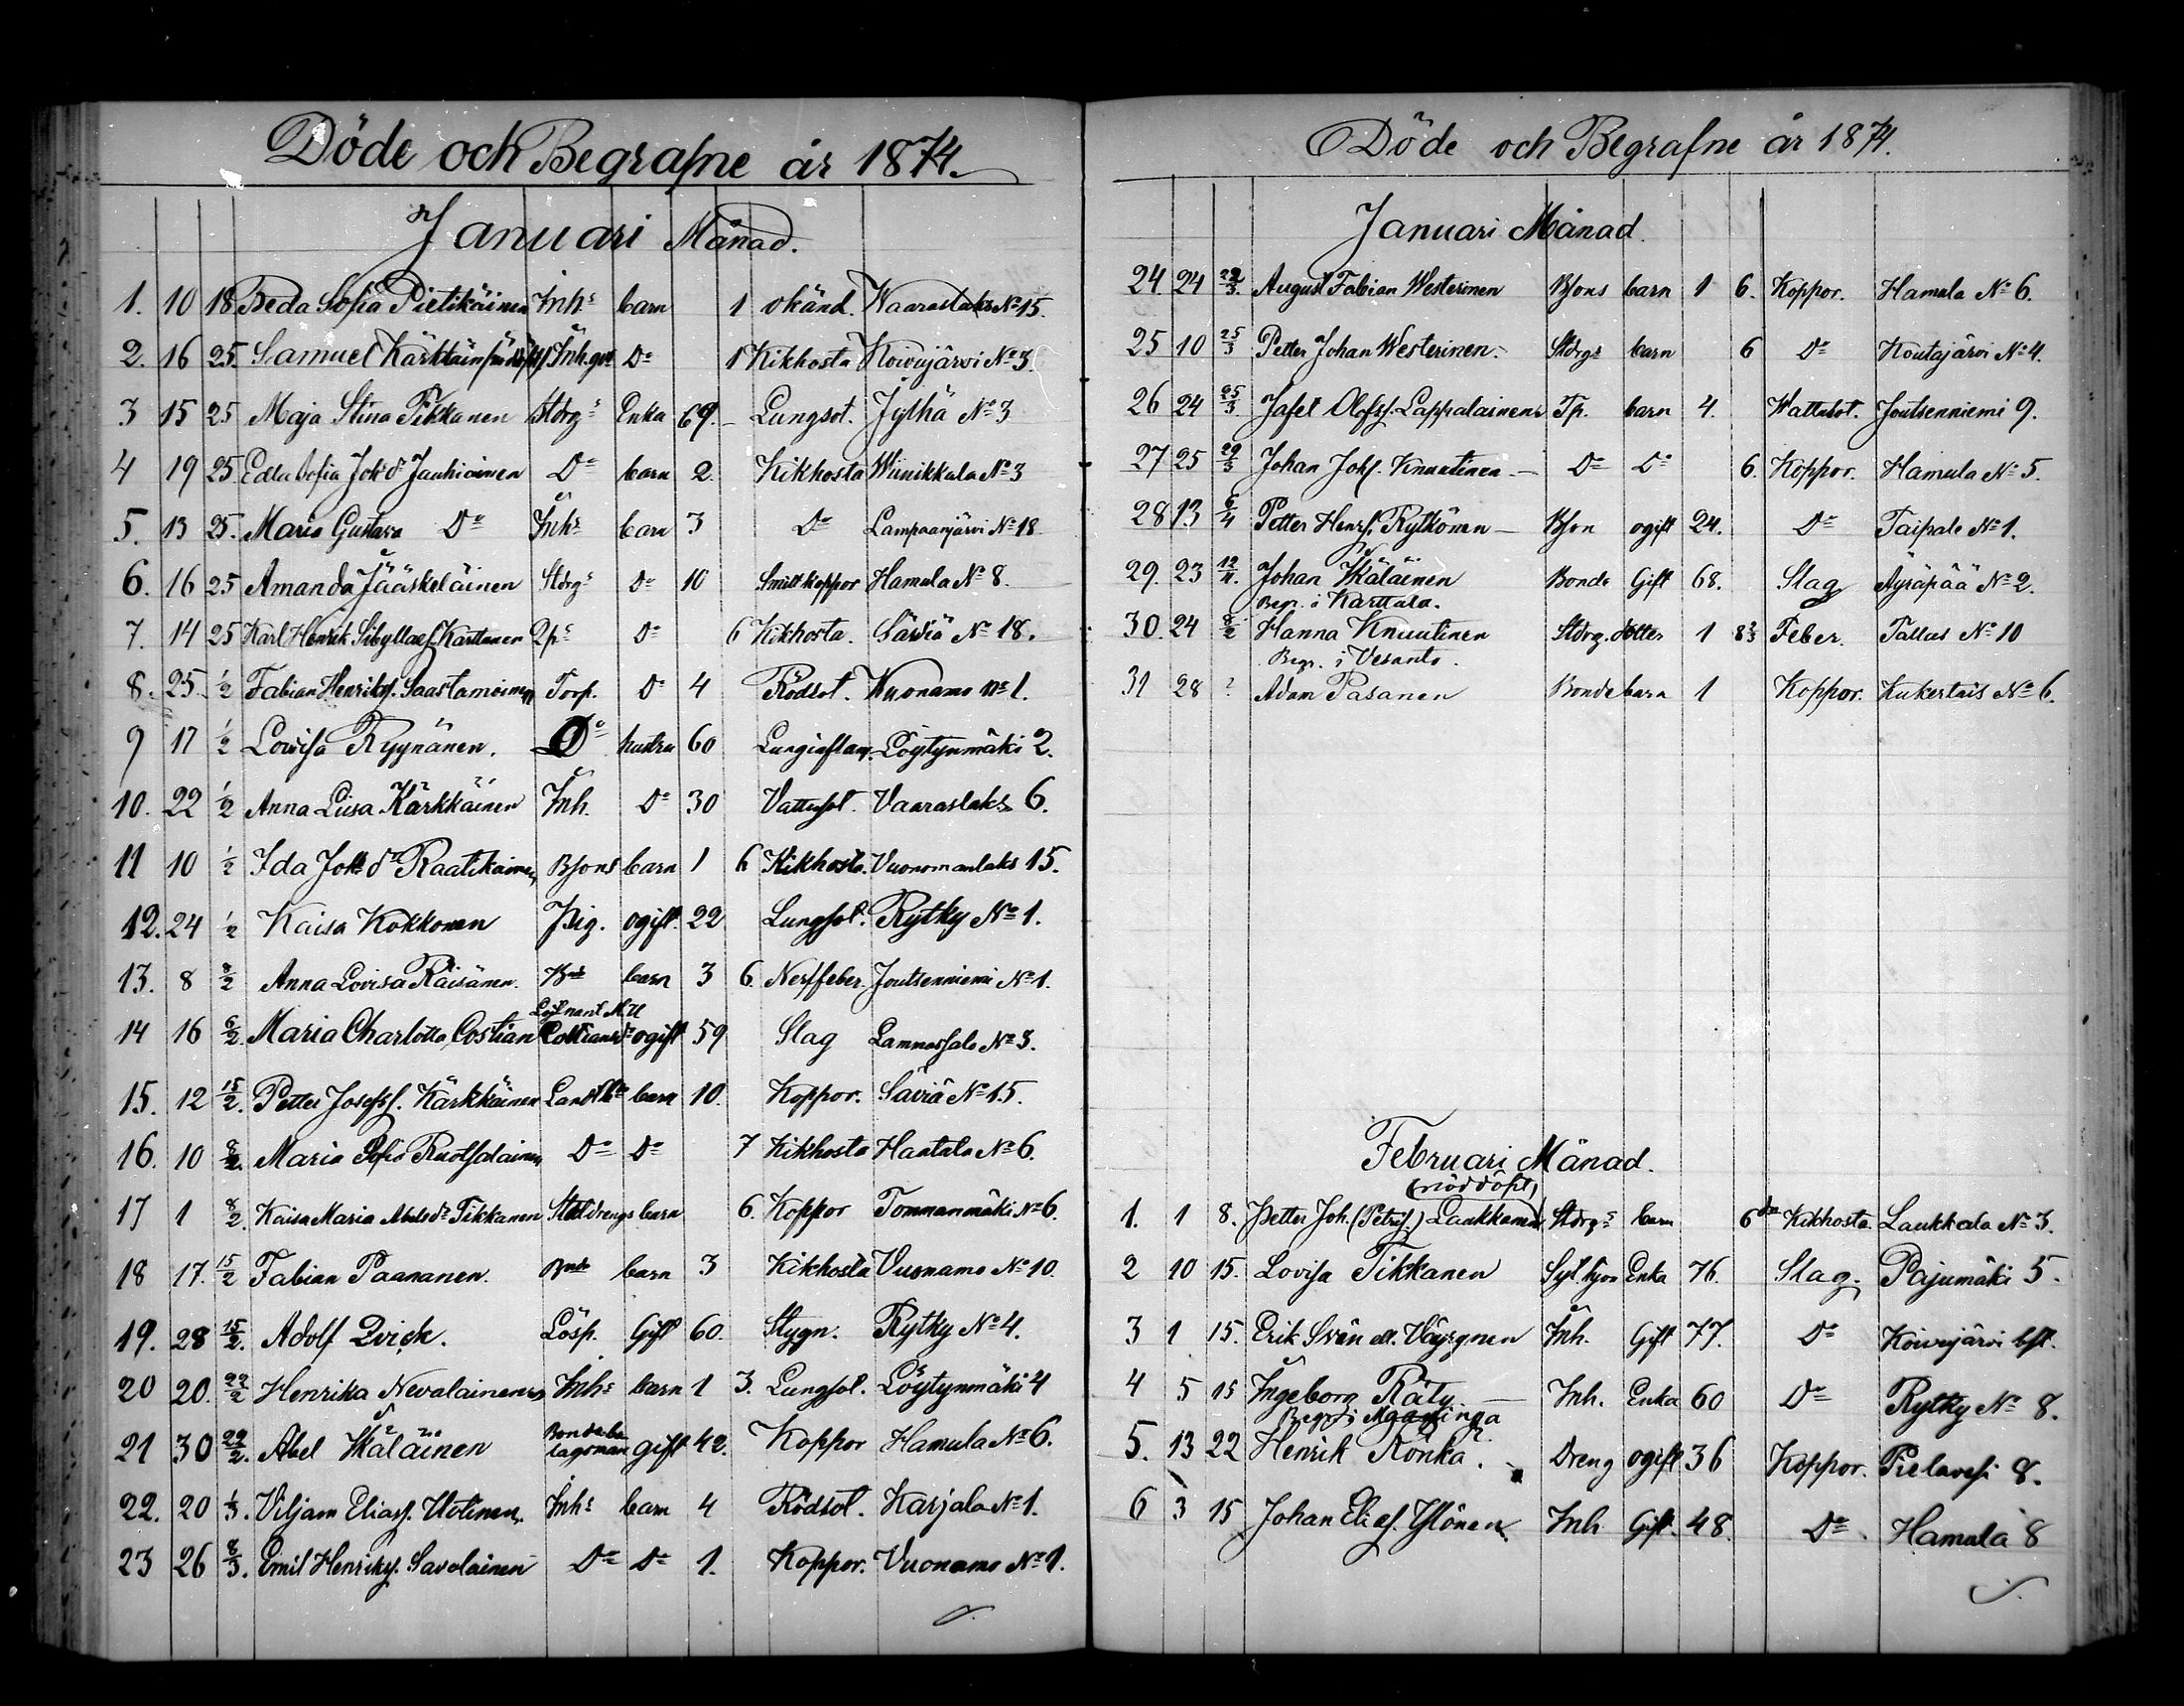 Döde och Begrafne år 1874.
Januari Månad.
1. 10 18 Beda Sofia Pietikäinen Inhs barn 1 okänd. Waaraslaks No 15.
2. 16 25. Samuel Inh. Do 1 Kikhosta Koivujärvi No 3.
3 15 25 Maja Stina Tikkanen Stdrgs Enka 69. Lungsot. Jylhä No 3
4 19 25. Edla Sofia Joh.dr Jauhiainen Do barn 2. Kikhosta Wiinikkala No 3
5. 13 25. Maria Gustava Do Inhs barn 3 Do Lampaanjärvi No 18
6. 16 25 Amanda Jääskeläinen Stdrgs Do 10 Smittkoppor Hamula No 8.
7. 14 25 Karl Henrik Sibyllaes. Karttunen Do 6 Kikhosta. Säviä No 18.
8. 25. 1/2 Fabian Henrikss. Saastamoinen Torp. Do 4 Rödsot. Wuonamo No 1.
9 17 1/2 Lovisa Ryynänen. Do hustru 60 Lunginflam. Löytynmäki 2.
10. 22 1/2 Anna Liisa Kärkkäinen Inh. Do 30 Vattusot. Vaaraslaks 6.
11 10 1/2 Ida Joh.dr Raatikainen Bsons barn 1 6 Kikhosta. Vuonomanlaks 15.
12. 24 1/2 Kaisa Kokkonen Pig. ogift. 22 Lungsot. Rytky No 1.
13. 8 8/2 Anna Lovisa Räisänen. barn 3 6. Nerffeber. Joutsenniemi No 1.
Löjtnant
14 16 6/2. Maria Charlotta Costian Costians dr ogift 59 Slag Lammassalo No 3.
15. 12 15/2. Petter Josefss. Kärkkäinen barn 10. Koppor. Säviä No 15.
16. 10 8/2. Maria Sofia Ruotsalainen Do Do 7 Kikhosta Hautala No 6.
17 1 8/2. Kaisa Maria Abelsdr Tikkanen Statdrengs barn 6. Koppor Tommanmäki No 6.
18 17. 15/2 Fabian Paananen. barn 3 Kikhosta Vuonamo No 10.
19. 28 15/2. Adolf Qvick. Lösp. Gift 60. Stygn. Rytky No 4.
20 20. 22/2 Henrika Nevalainen Inhs barn 1 3. Lungsot. Löytynmäki 4
21 30 22/2. Abel Ikäläinen lagsman gift 42. Koppor Hamula No 6.
22. 20 1/3. Viljam Eliass. Utotinen. Inhs barn 4 Rödsot. Karjala No 1.
23 26 8/3. Emil Henrikss. Savolainen Do Do 1. Koppor. Vuonamo No 1.
Döde och Begrafne år 1874.
Januari Månad.
24. 24 22/3. August Fabian Westerinen Bsons barn 1 6. Koppor. Hamula No 6.
25 10 25/3 Petter Johan Westerinen. Stdrgs barn 6 Do Koutajärvi No 4.
26 24 25/3 Jafet Olofss. Lappalainen Tp. barn 4. Wattusot. Joutsenniemi 9.
27 25 29/3 Johan Johs. Knuutinen Do Do 6. Koppor. Hamula No 5.
28 13 6/4 Petter Henrs. Rytkönen Bson ogift 24. Do Taipale No 1.
29. 23 12/4. Johan Ikäläinen Bonde Gift 68. Slag Äyräpää No 2.
Begr. i Karttula.
30. 24 8/2 Hanna Knuutinen Stdrg. dotter 1 8 2/3 Feber. Tallus No 10
Begr. i Vesanto.
31 28 ? Adam Pasanen Bonde barn 1 Koppor. Kukertais No 6.
Februari Månad.
(nöddöpt)
1. 1 8. Petter Joh. (Petris.) Laukkanen Stdrgs barn 6 dr Kikhosta. Laukkala No 3.
2 10 15. Lovisa Tikkanen Enka 76. Slag. Pajumäki 5.
3 1 15. Erik Svän ell. Väyrynen Inh. Gift 77. Do Koivujärvi bst.
4 5 15 Ingeborg Räty Inh. Enka 60 Do Rytky No 8.
Begr. i Maaninga
5. 13 22 Henrik Rönkä. Dreng ogift 36 Koppor. Pielavesi 8.
6 3 15 Johan Elies. Ylönen Inh Gift. 48. Do Hamula 8